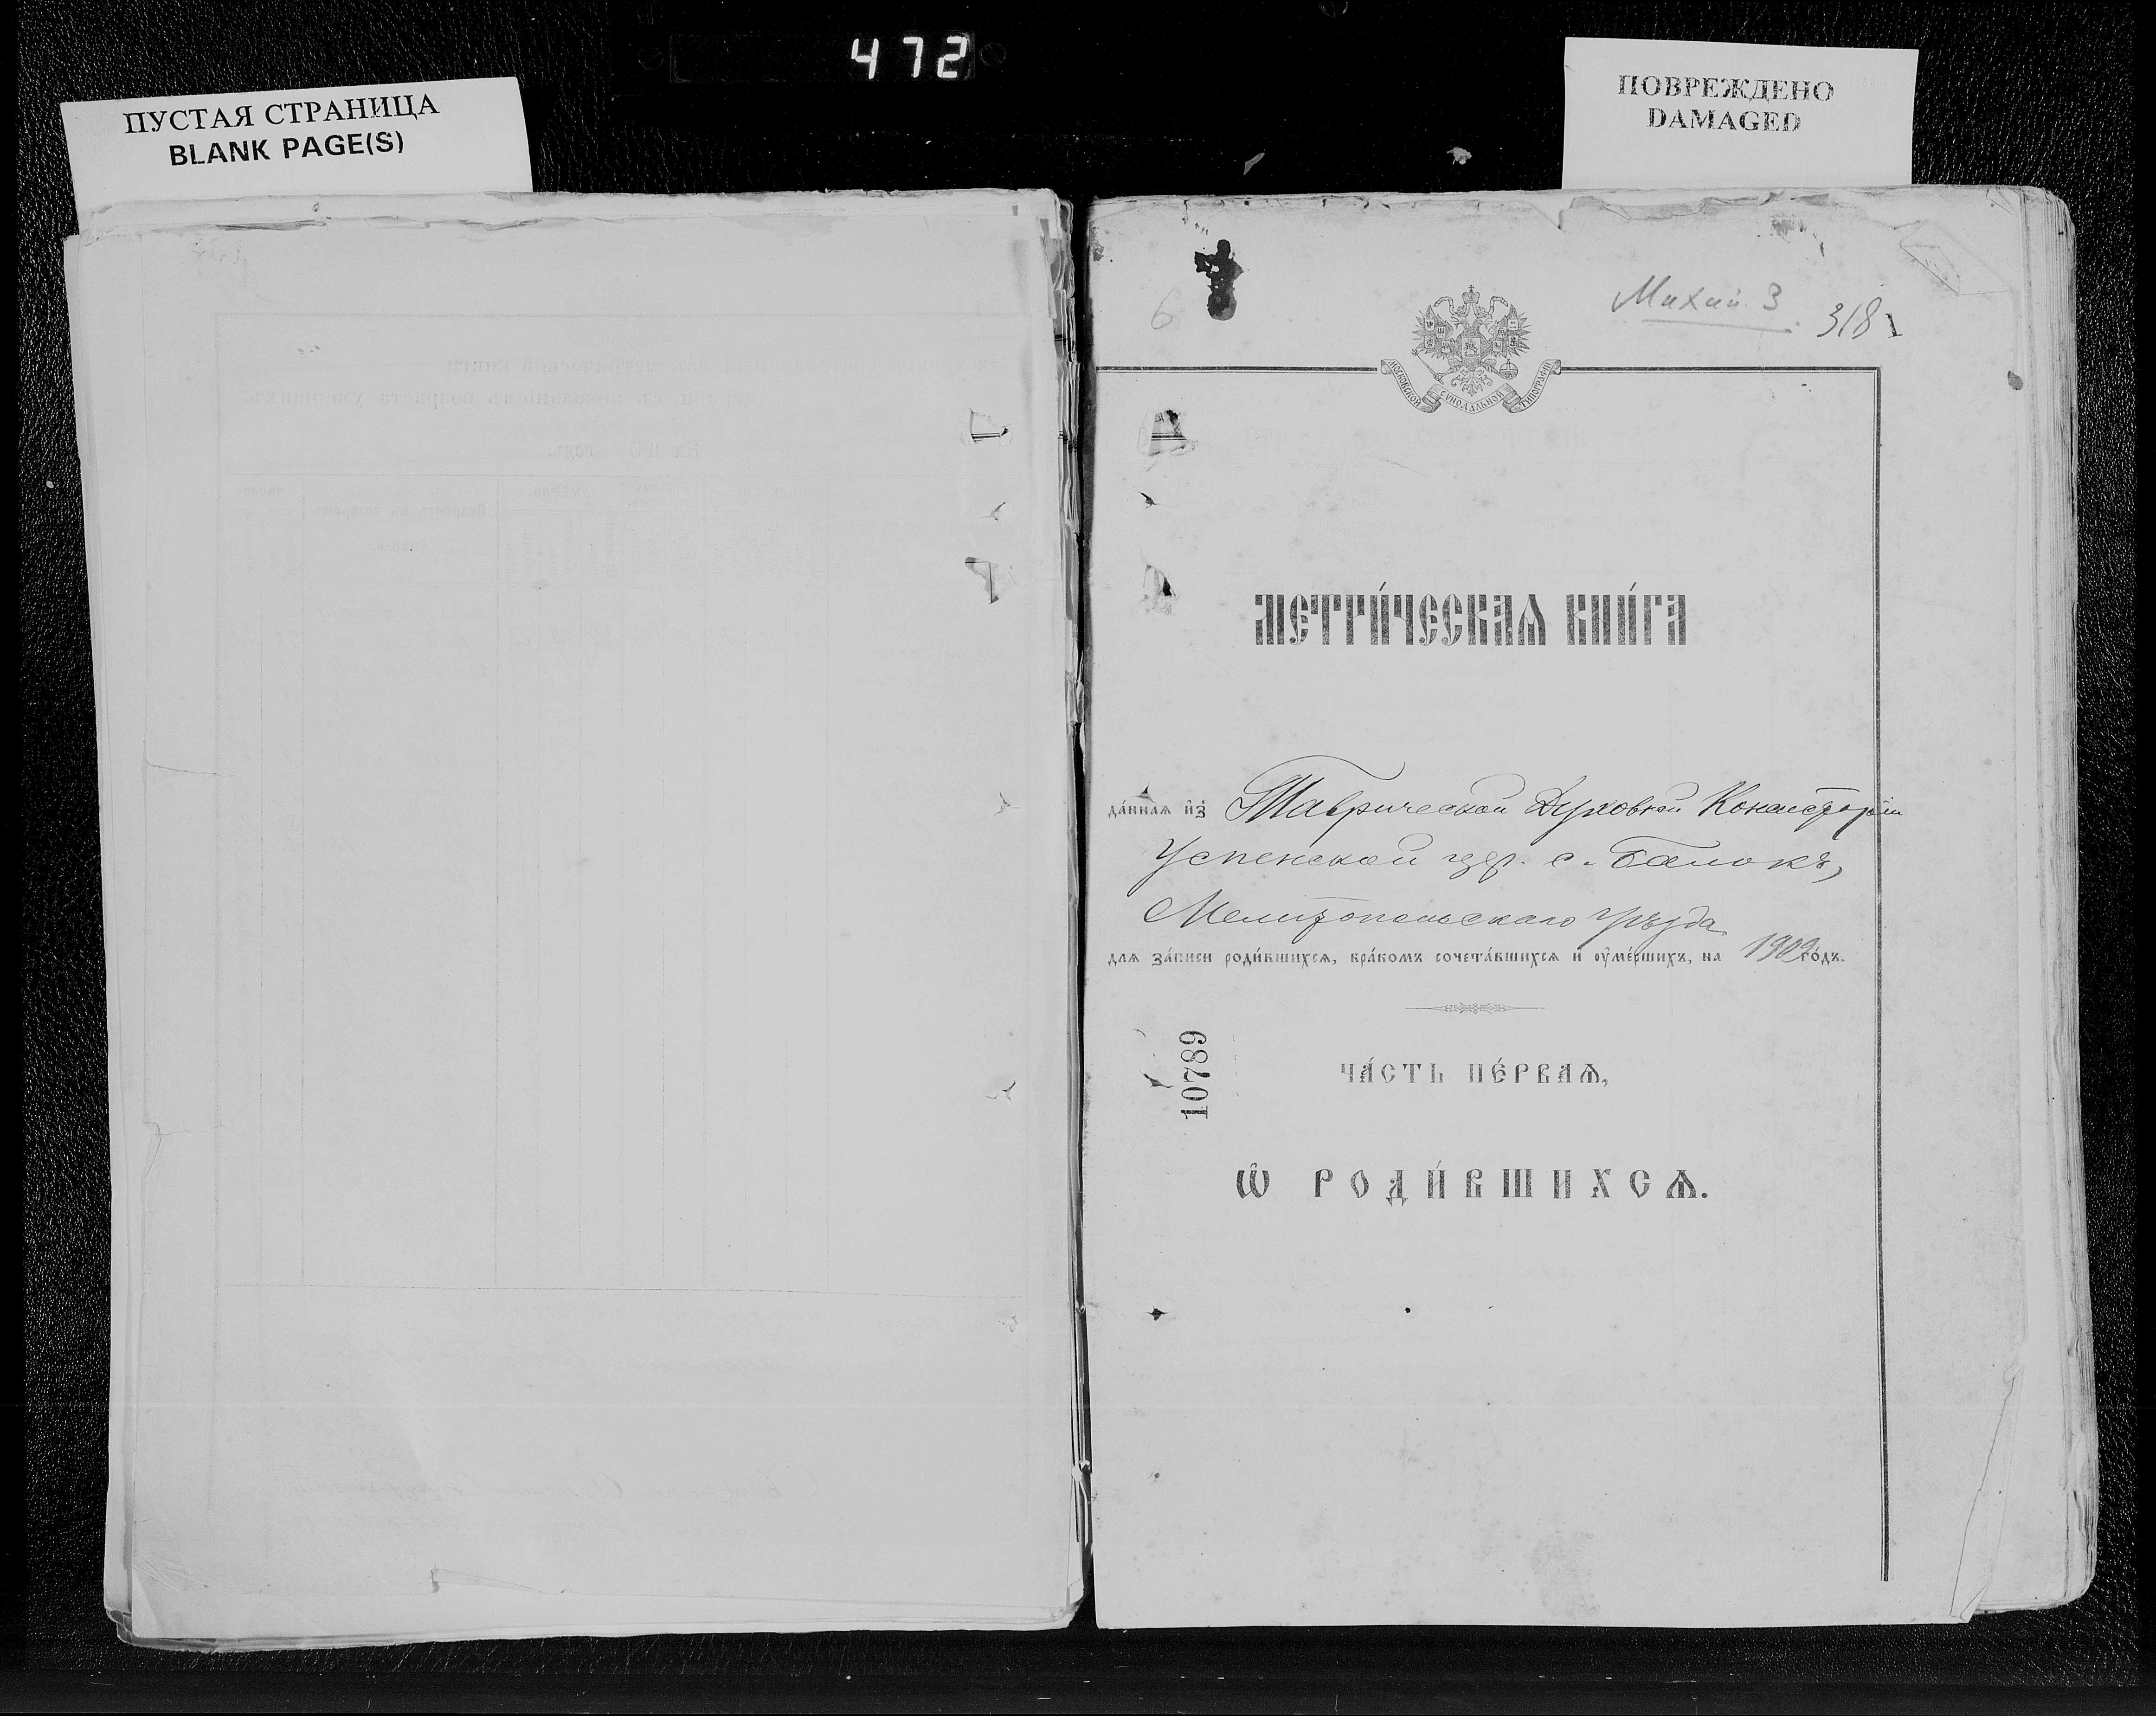 472
ПУСТАЯ СТРАНИЦА
BLANK PAGE(S)
ПОВРЕЖДЕНО
DAMAGED
6
3
318
МОСКОВСКОЙ СѴНОДАЛЬНОЙ ТИПОГРАФІИ
МЕТРИ́ЧЕСКАѦ КНИ́ГА
да́ннаѧ и҆з̾ Таврической Духовной Консисторіи
Успенской цер. с. Балокъ,
Мелитопольскаго уѣзда
для за́писи роди́вшихсѧ, бра́комъ сочета́вшихсѧ и҆ ᲂу҆ме́ршихъ, на 1909 го́дъ.
10789
ЧА́СТЬ ПЕ́РВАѦ,
Ѡ҆ РОДИ́ВШИХСѦ.